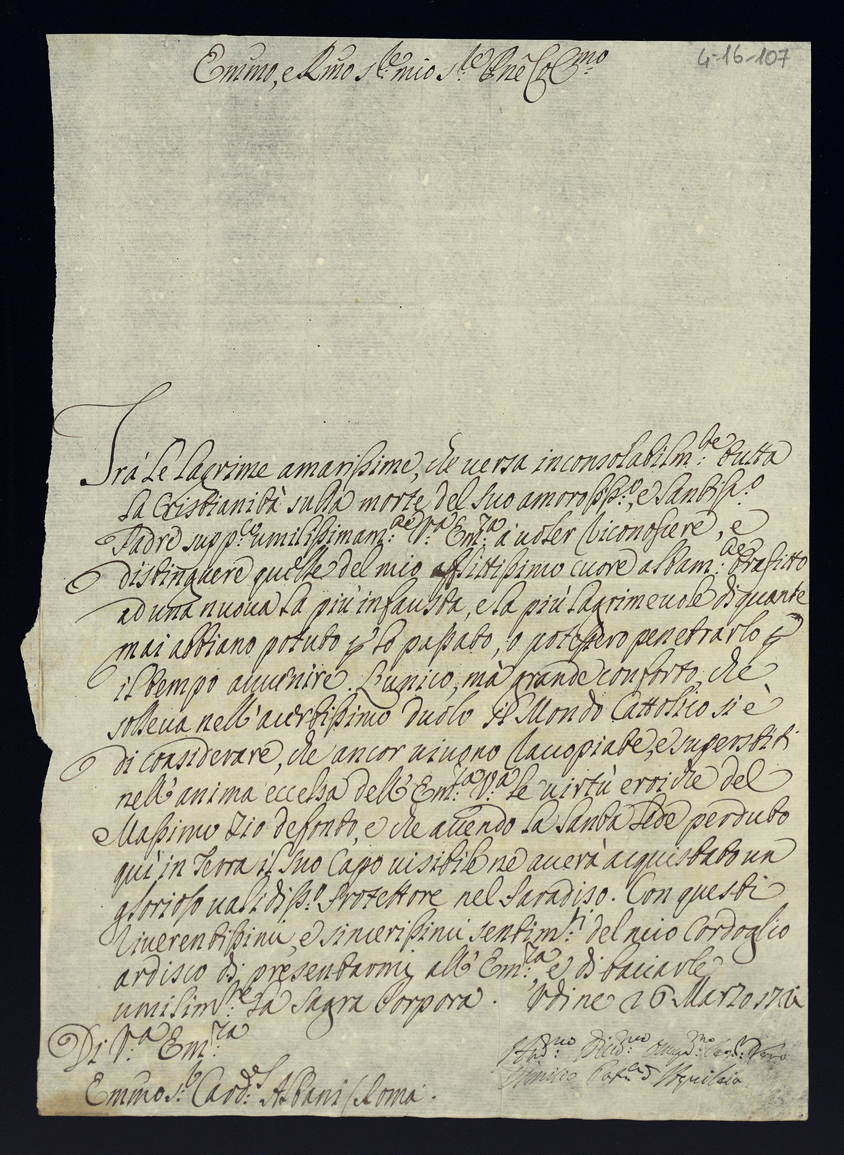 Emmo, e Rmo Sre mio Sre Pne Colmo
4-16-107
Trà Le Lagrime amarissime, che versa inconsolabilmte tutta
La Cristianità sulla morte del suo amorosissmo, e Santissmo
Padre suppco umilissimamte Va Emza à voler riconoscere, e
distinguere quelle del mio afflittissimo cuore altamte trafitto
ad una nuova La più infausta, e la più Lagrimevole di quante
mai abbiano potuto p lo passato, o potessero penetrarlo p
il tempo avvenire. L'unico, mà grande conforto, che
solleva nell'acerbissimo duolo il Mondo Cattolico si è
di considerare, che ancor vivono raccopiate, e superstiti
nell'anima eccelsa dell'Emza Va Le virtù eroiche del
Massimo Zio defonto, e che avendo La Santa Sede perduto
quì in Terra il suo Capo visibile ne averà acquistato un
glorioso validissmo Protettore nel Paradiso. Con questi
riverentissimi, e sincerissimi sentimti del mio Cordoglio
ardisco di presentarmi all'Emza, e di baciarle
umilmte La Sagra Porpora. Udine 26 Marzo 1721
Di Va Emza
Emmo Sr Cardel Albani / Roma.
Dionisio Patrca d'Aquileia